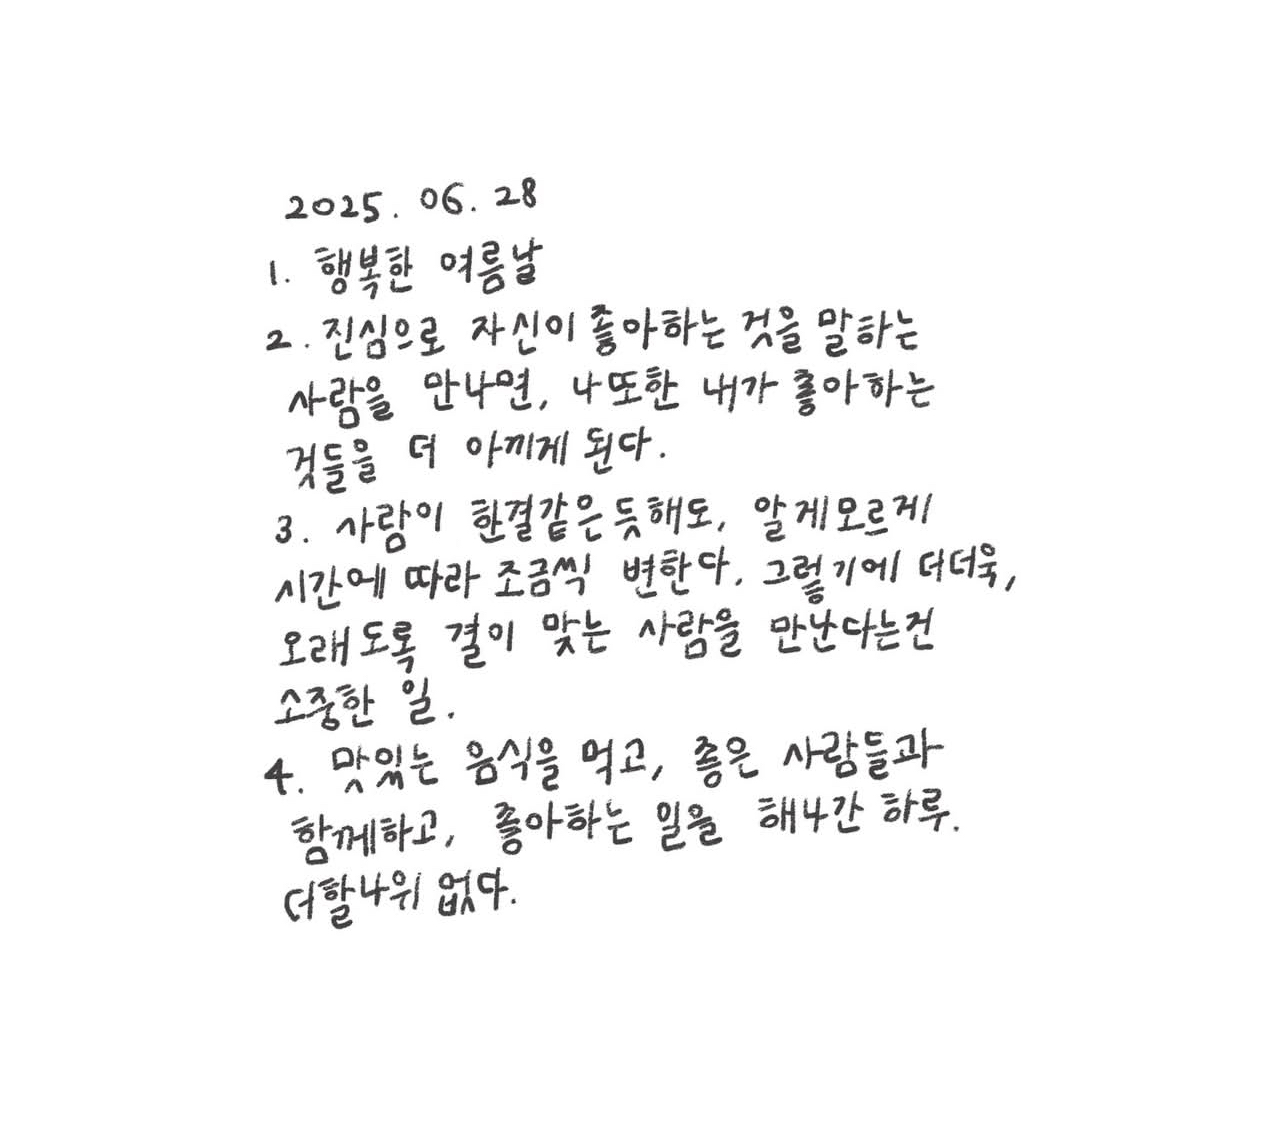 2025. 06. 28
1. 행복한 여름날
2. 진심으로 자신이 좋아하는 것을 말하는
사람을 만나면, 나또한 내가 좋아하는
것들을 더 아끼게 된다.
3. 사람이 한결같은듯해도, 알게모르게
시간에 따라 조금씩 변한다. 그렇기에 더더욱,
오래도록 결이 맞는 사람을 만난다는건
소중한 일.
4. 맛있는 음식을 먹고, 좋은 사람들과
함께하고, 좋아하는 일을 해나간 하루.
더할나위 없다.